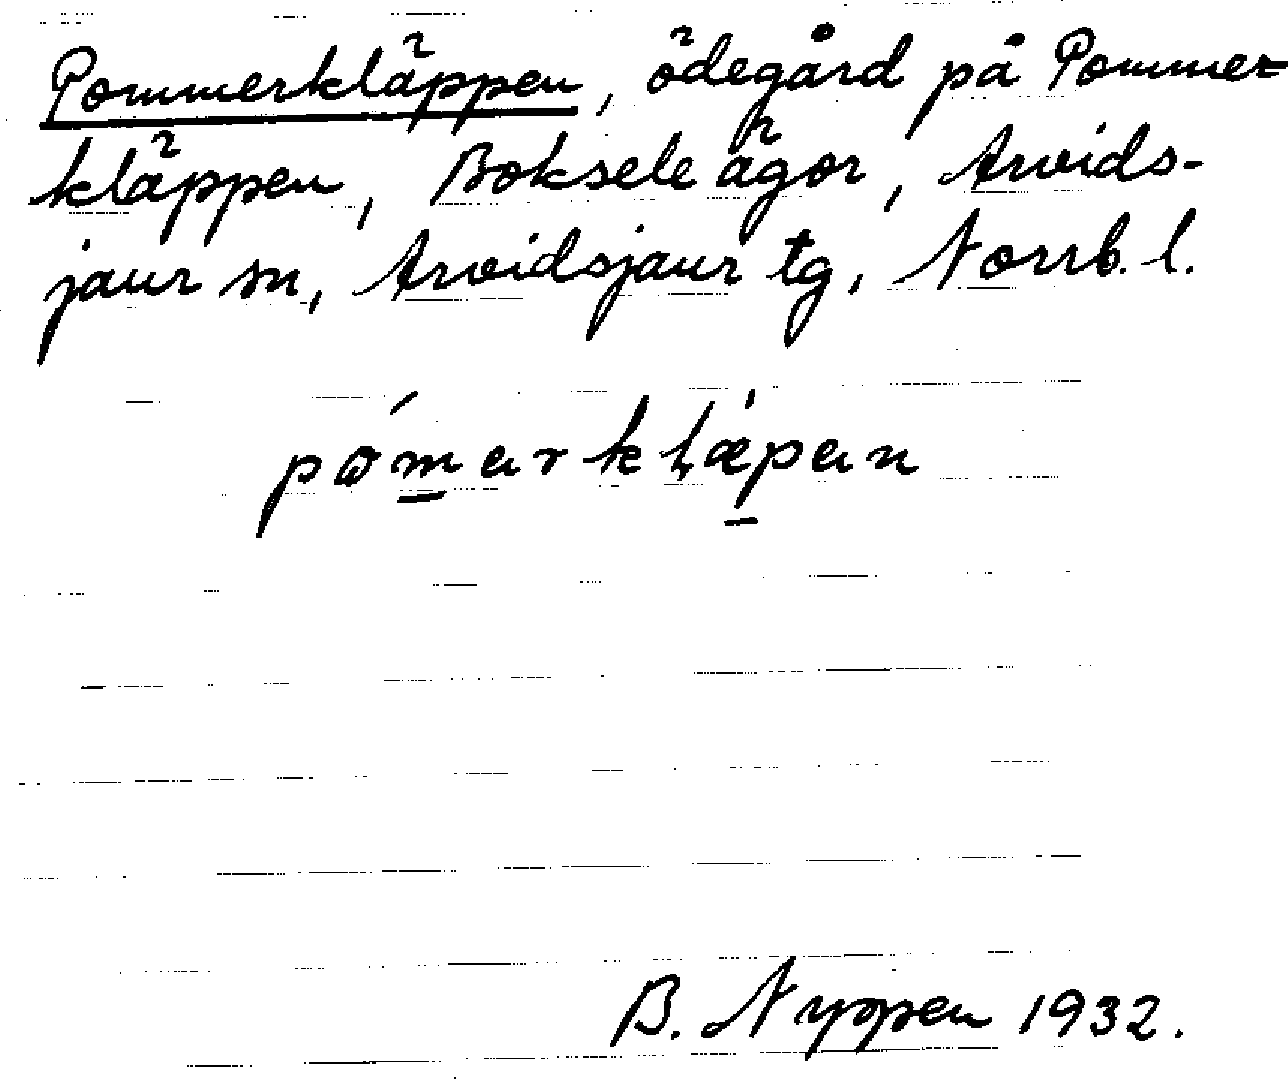 Pommerkläppen, ödegård på Pommer=
kläppen, Boksele ägor, Arvids-
jaur sn, Arvidsjaur tg, Norrb. l.
B. Nyppen 1932.